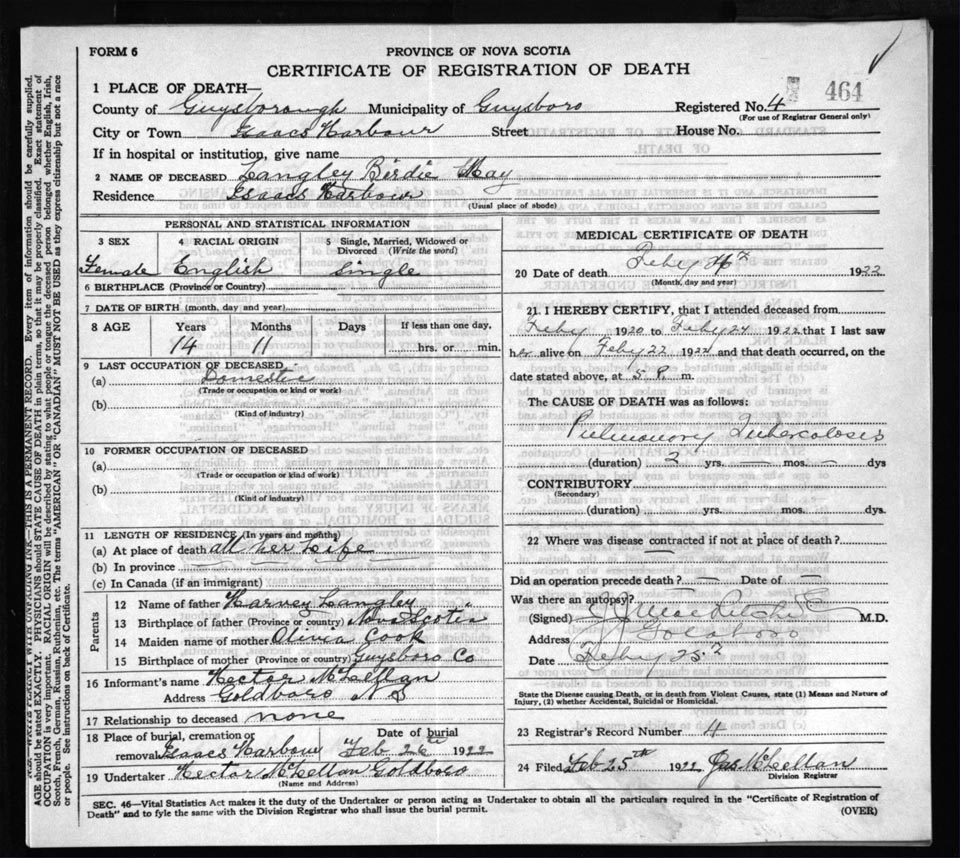 FORM 6
PROVINCE OF NOVA SCOTIA
CERTIFICATE OF REGISTRATION OF DEATH
464
1 PLACE OF DEATH—
County of Guysborough Municipality of Guysboro Registered No. 4
(For use of Registrar General only)
City or Town Isaacs Harbour Street House No.
If in hospital or institution, give name
2 NAME OF DECEASED Langley Birdie May
Residence Isaacs Harbour
(Usual place of abode)
PERSONAL AND STATISTICAL INFORMATION
3 SEX 4 RACIAL ORIGIN 5 Single, Married, Widowed or Divorced (Write the word)
Female English Single
6 BIRTHPLACE (Province or Country)
7 DATE OF BIRTH (month, day and year)
8 AGE Years Months Days If less than one day,
14 11 hrs. or min.
9 LAST OCCUPATION OF DECEASED
(a) Domestic
(Trade or occupation or kind or work)
(b)
(Kind of industry)
10 FORMER OCCUPATION OF DECEASED
(a)
(Trade or occupation or kind of work)
(b)
(Kind of industry)
11 LENGTH OF RESIDENCE (In years and months)
(a) At place of death all her Life
(b) In province
(c) In Canada (if an immigrant)
Parents
12 Name of father Harvey Langley
13 Birthplace of father (Province or country) Nova Scotia
14 Maiden name of mother Olivia Cook
15 Birthplace of mother (Province or country) Guysboro Co
16 Informant's name Hector McLellan
Address Goldboro N S
17 Relationship to deceased none
18 Place of burial, cremation or removal Isaacs Harbour Date of burial Feb 26th 1922
19 Undertaker Hector McLellan Goldboro
(Name and Address)
MEDICAL CERTIFICATE OF DEATH
20 Date of death Feby 24th 1922
(Month, day and year)
21. I HEREBY CERTIFY, that I attended deceased from
Feby 1920 to Feby 24 1922 that I last saw
her alive on Feby 22 1922 and that death occurred, on the
date stated above, at 5 P. m.
The CAUSE OF DEATH was as follows:
Pulmonary Tuberculosis
(duration) 2 yrs. — mos. — dys
CONTRIBUTORY
(Secondary)
(duration) yrs. mos. dys.
22 Where was disease contracted if not at place of death?
—
Did an operation precede death? — Date of —
Was there an autopsy?
(Signed) M.D.
Address Goldboro
Date Feby 25th
State the Disease causing Death, or in death from Violent Causes, state (1) Means and Nature of
Injury, (2) whether Accidental, Suicidal or Homicidal.
23 Registrar's Record Number 4
24 Filed Feb 25th 1922 Jas McLellan
Division Registrar
SEC. 46—Vital Statistics Act makes it the duty of the Undertaker or person acting as Undertaker to obtain all the particulars required in the "Certificate of Registration of
Death" and to fyle the same with the Division Registrar who shall issue the burial permit.
(OVER)
WRITE PLAINLY WITH UNFADING INK—THIS IS A PERMANENT RECORD. Every item of information should be carefully supplied.
AGE should be stated EXACTLY. PHYSICIANS should STATE CAUSE OF DEATH in plain terms, so that it may be properly classified. Exact statement of
OCCUPATION is very important. RACIAL ORIGIN will be described by stating to what people or tongue the deceased person belonged whether English, Irish,
Scotch, French, German, Russian, Ruthenian, etc. The terms "AMERICAN" OR "CANADIAN" MUST NOT BE USED as they express citizenship but not a race
or people. See instructions on back of Certificate.